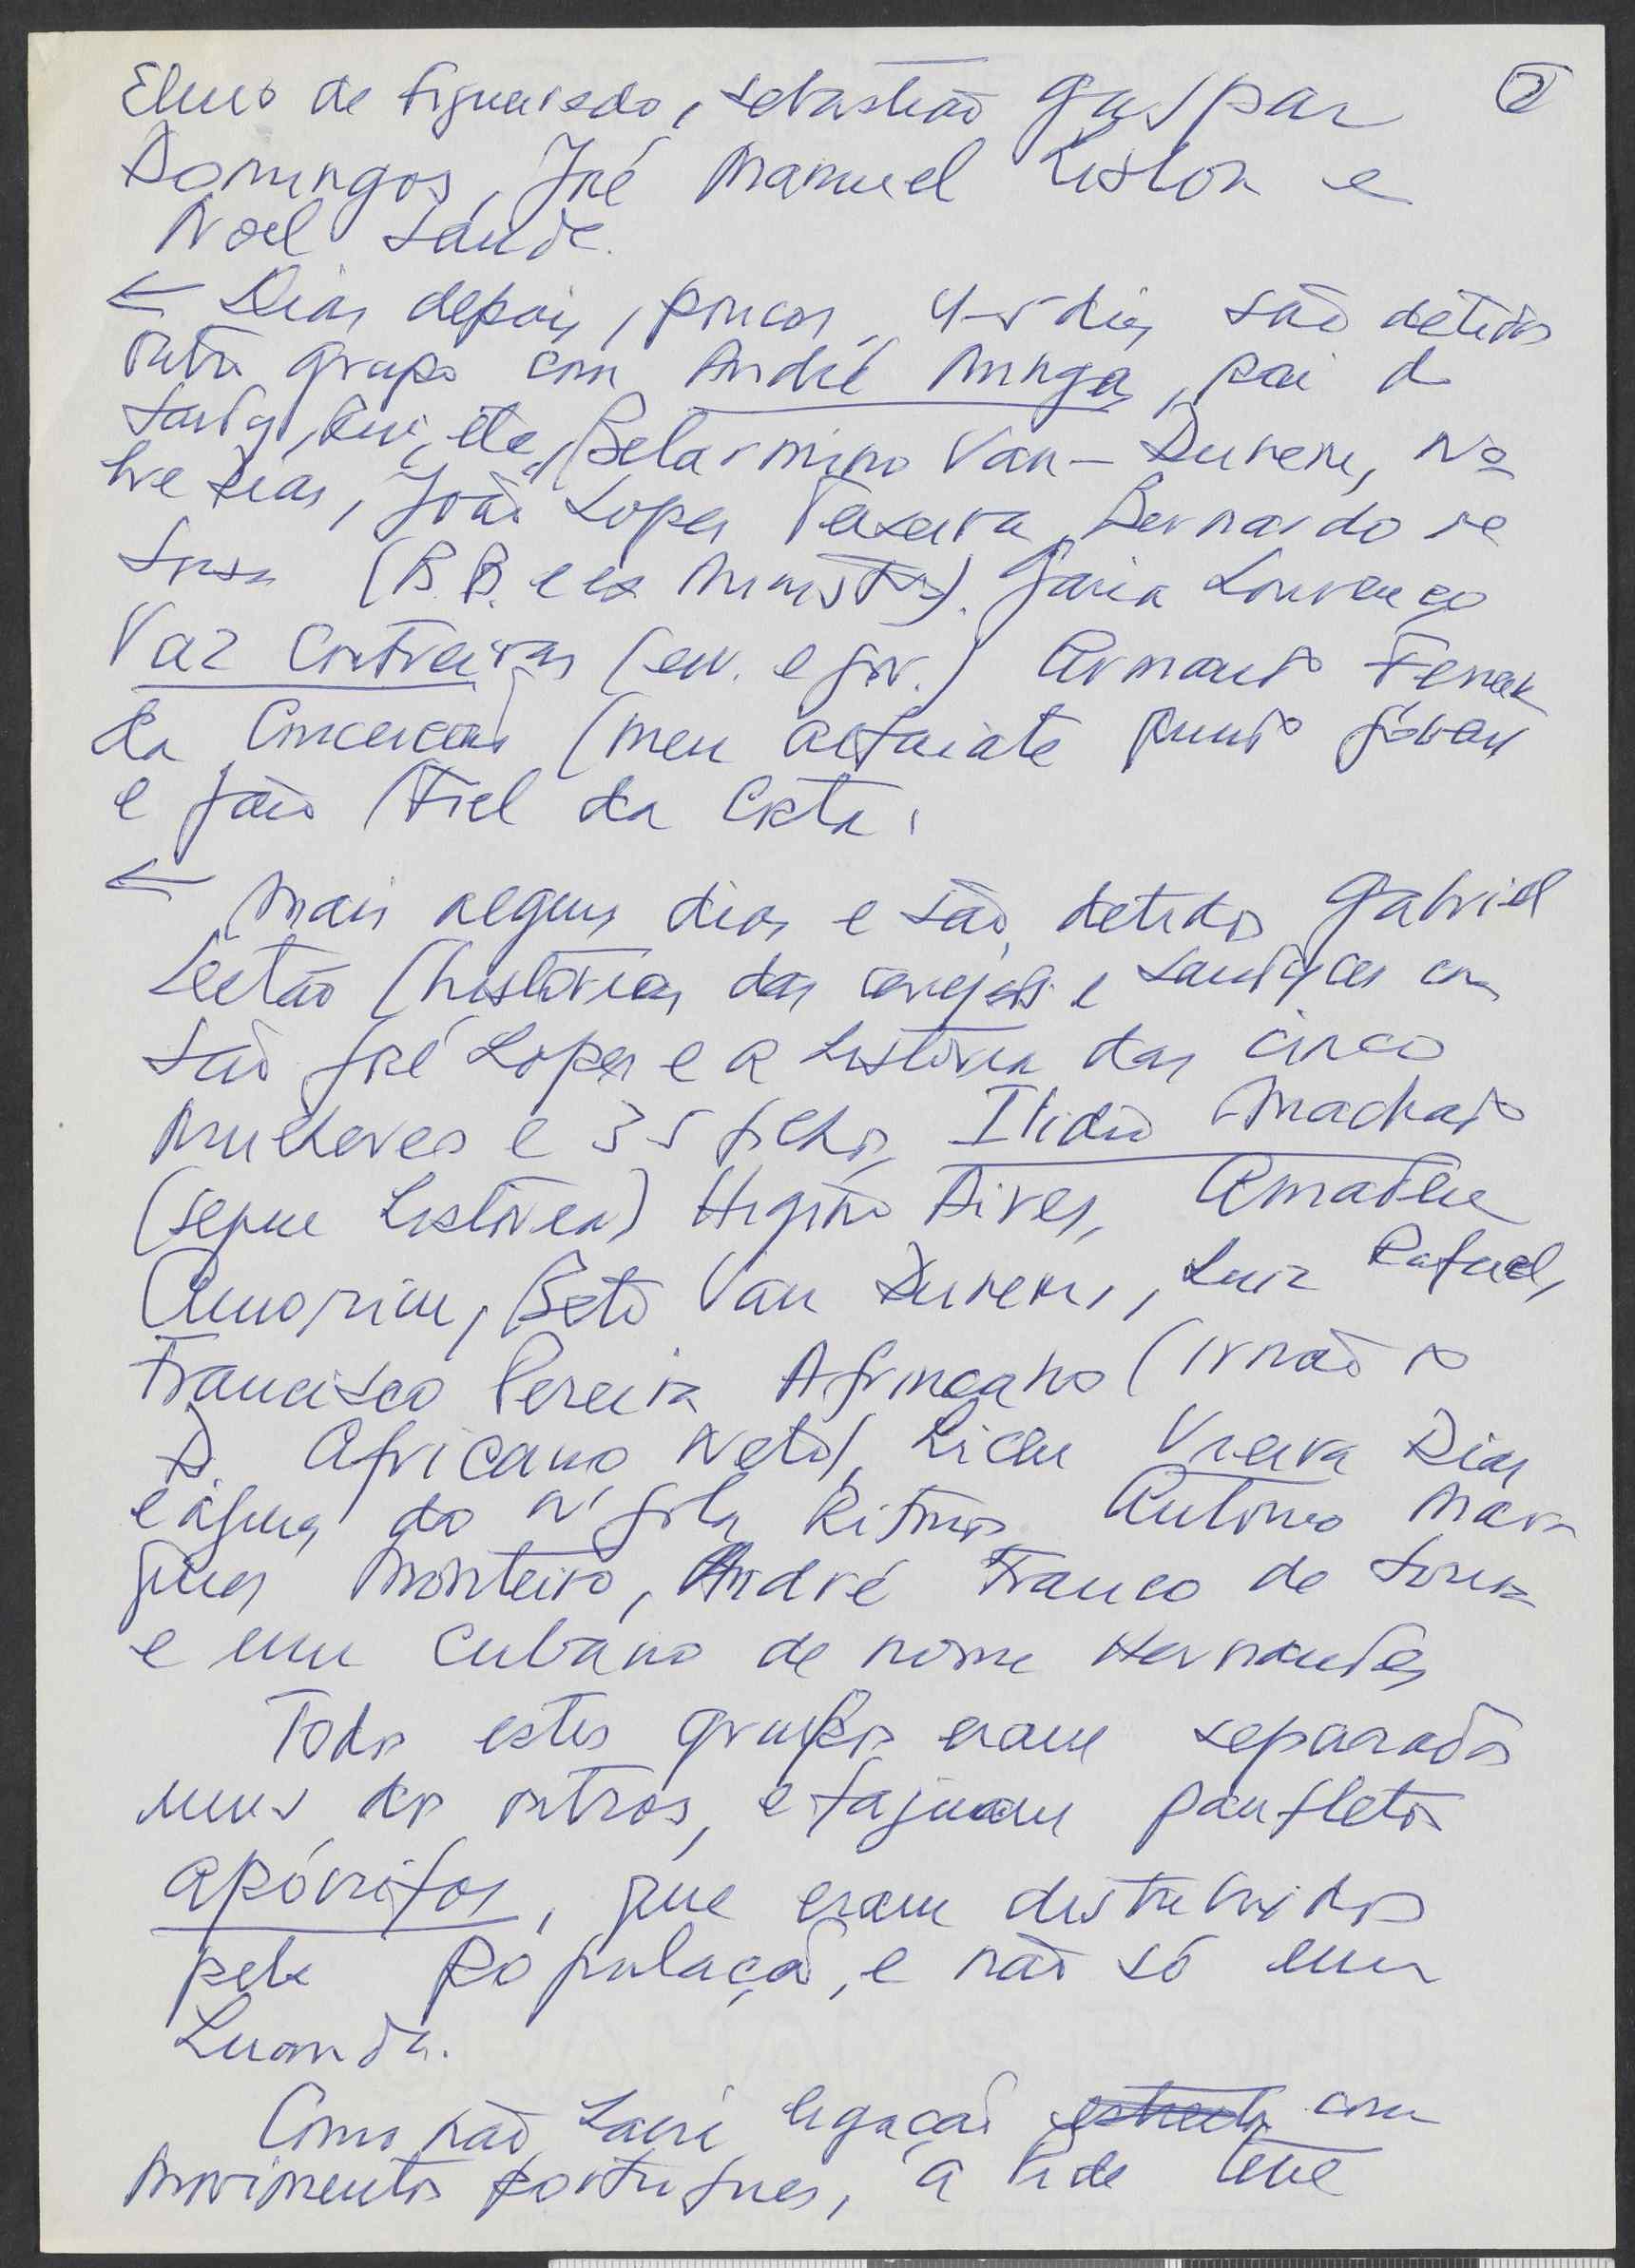 Elmo de Figueiredo, Sebastião Gaspar 2
Domingos, José Manuel Lisboa e
Noel Saúde.
← Dias depois, poucos, 4-5 dias são detidos
outro grupo com André Mingas, pai do
Rui, etc, Belarmino Van-Dunem, No
bre Dias, João Lopes Teixeira, Bernardo de
Sousa (B.B. e ex Ministro). Garcia Lourenço
Vaz Contreiras (enf. e gov.) Armando Ferreira
da Conceição (meu alfaiate quando jovem
e João Fiel da Costa,
← Mais alguns dias e são detidos Gabriel
Leitão (histórias das cervejas e sandyces com
São José Lopes e a história das cinco
mulheres e 35 filhos, Ilidio Machado
(segue história) Higino Aires, Amadeu
Amorim, Beto Van Dunem, Luiz Rafael,
Francisco Pereira Africano (irmão do
D. Africano Neto), Liceu Vieira Dias
e alguns do N'gola Ritmos António Mar
ques Monteiro, André Franco de Sousa
e um cubano de nome Hernandes
Todos estes grupos eram separados
uns dos outros, e faziam panfletos
apócrifos, que eram distribuidos
pela população, e não só em
Luanda.
Como não havia ligação estreita com
movimentos portugues, a Pide teve